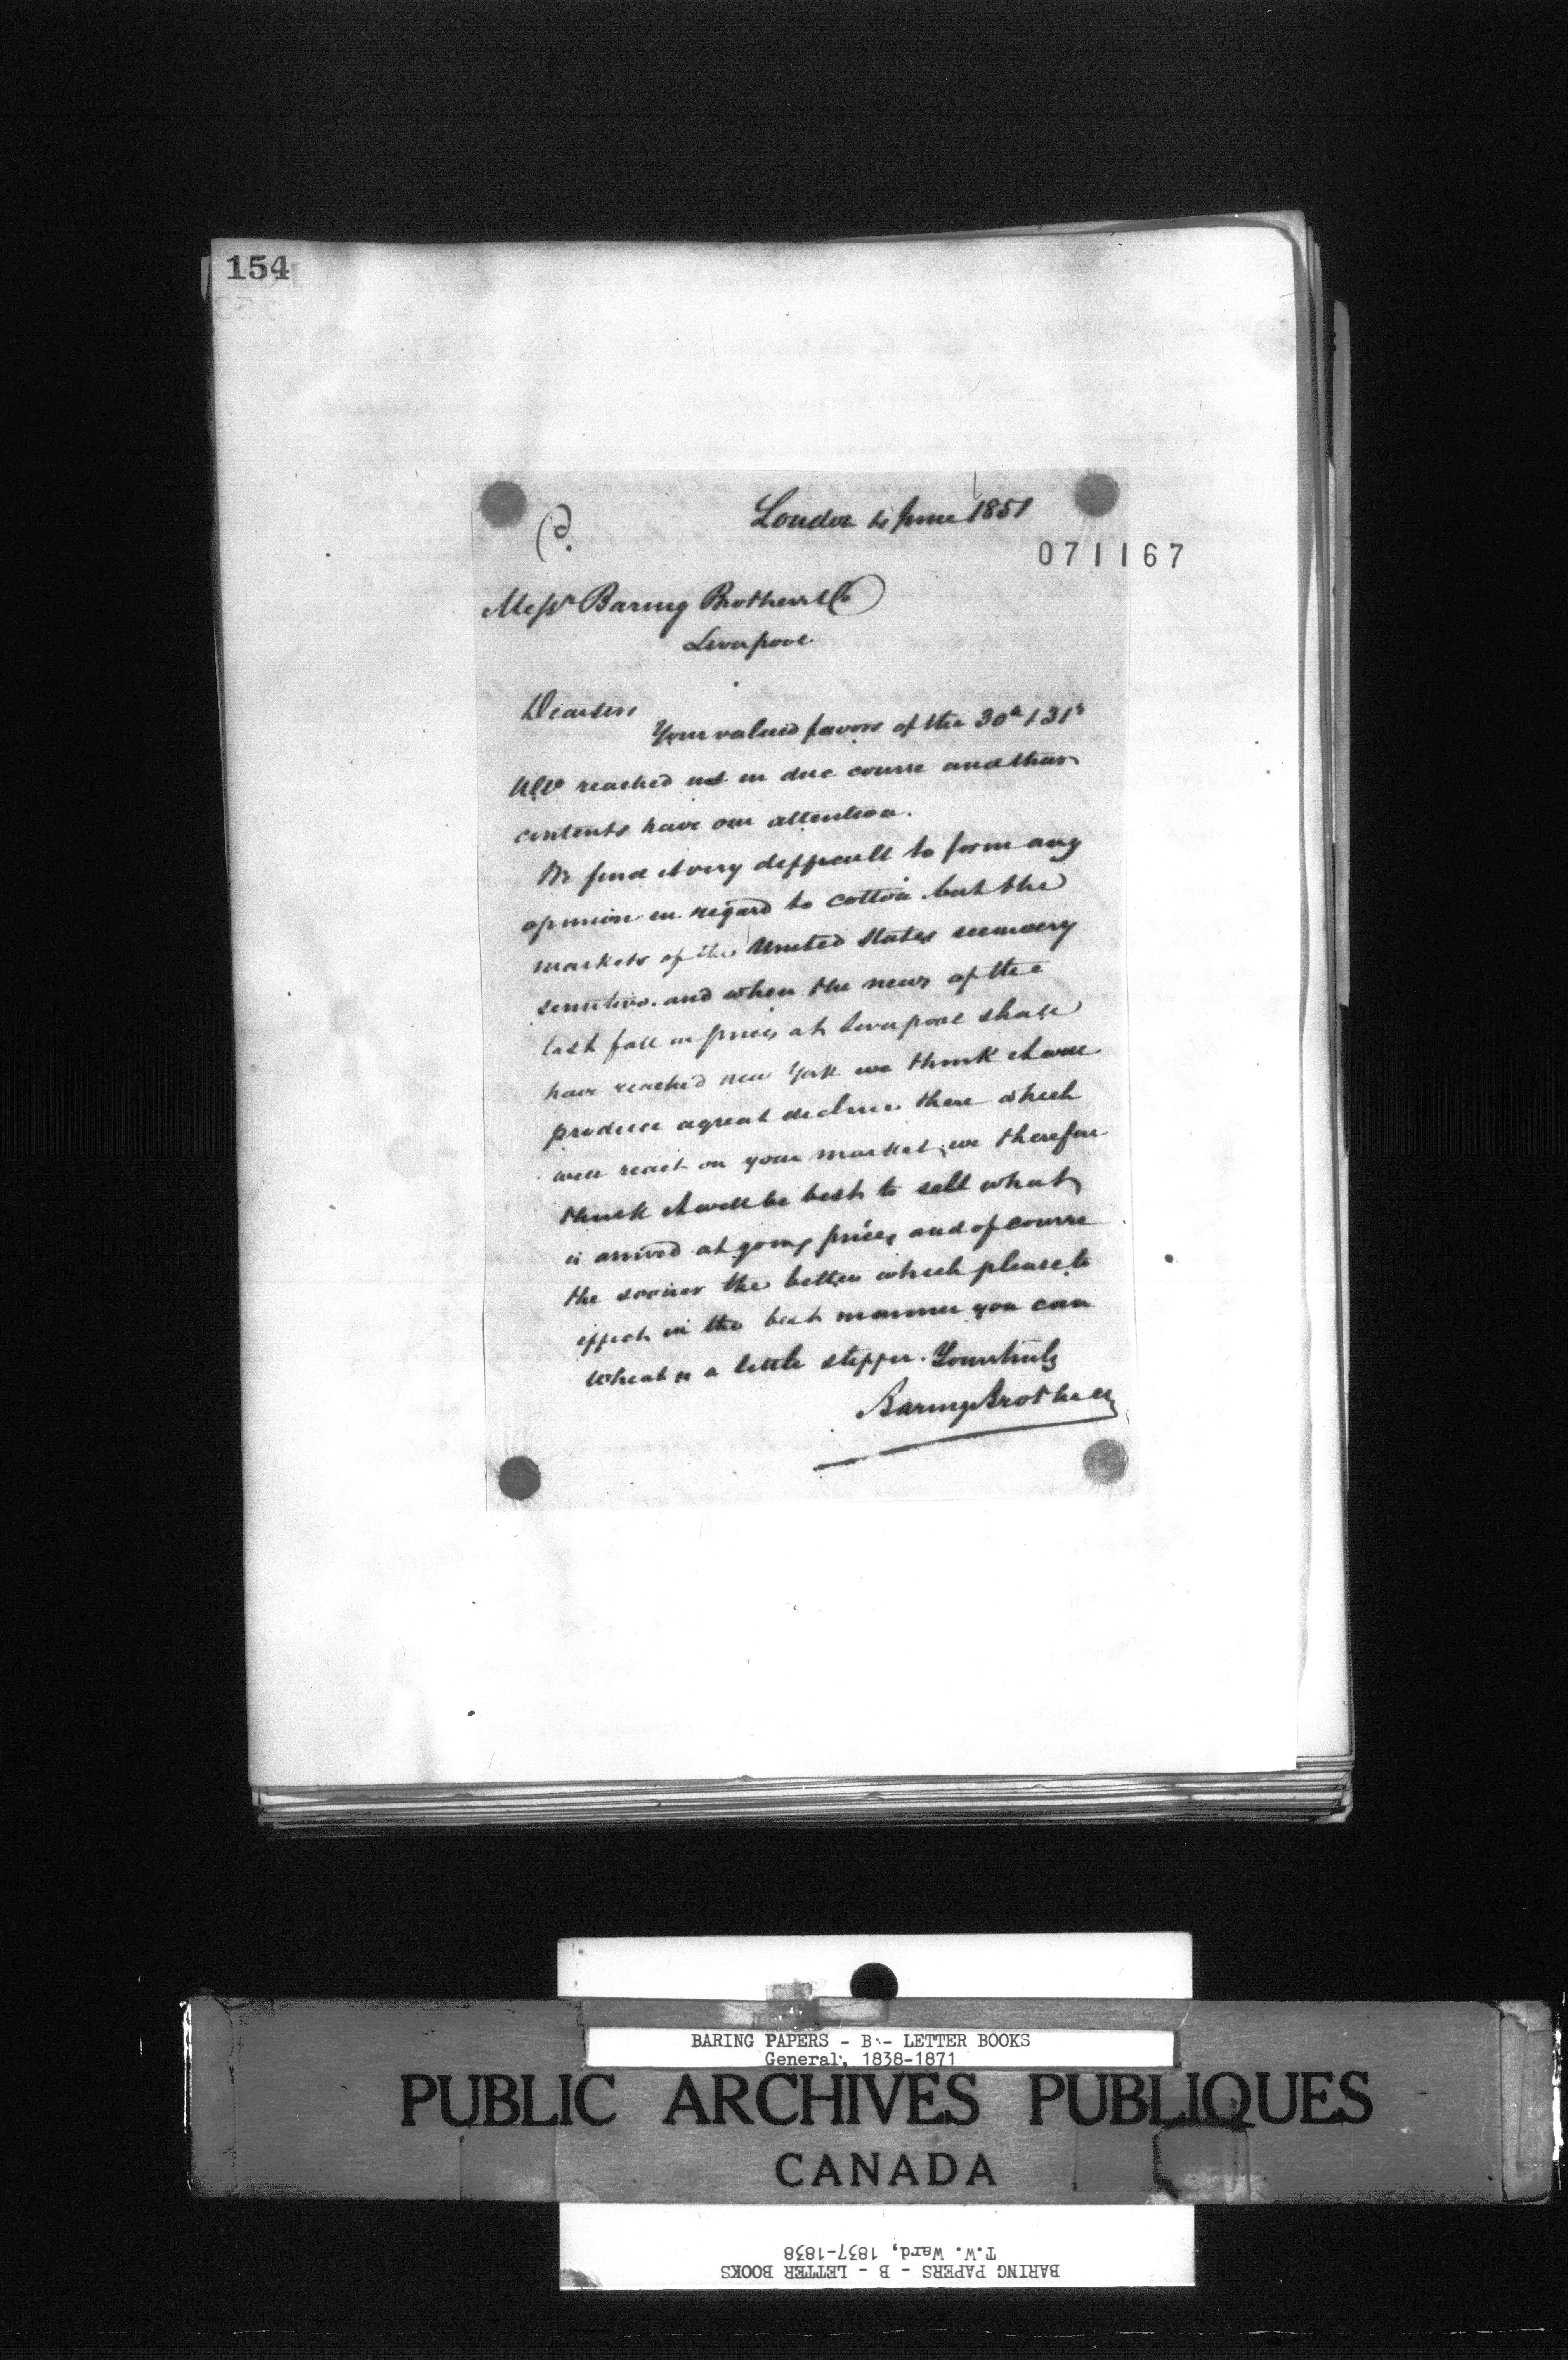 154
London 4 June 1851
071167
Messrs Baring Brothers & Co
Liverpool
Dear Sirs
Your valued favors of the 30th & 31st
Ulto reached us in due course and their
contents have our attention.
We find it very difficult to form any
opinion in regard to cotton. but the
markets of the United States seem very
sensitive. and when the news of the
last fall in prices at Liverpool shall
have reached New York we think it will
produce a great decline there which
will react on your market, we therefore
think it will be best to sell what
is arrived at going prices and of course
the sooner the better which please to
effect in the best manner you can
Wheat is a little stiffer. Yours truly
Baring Brothers
BARING PAPERS - B - LETTER BOOKS
General, 1838-1871
PUBLIC ARCHIVES PUBLIQUES
CANADA
T.W. Ward, 1837-1838
BARING PAPERS - B - LETTER BOOKS